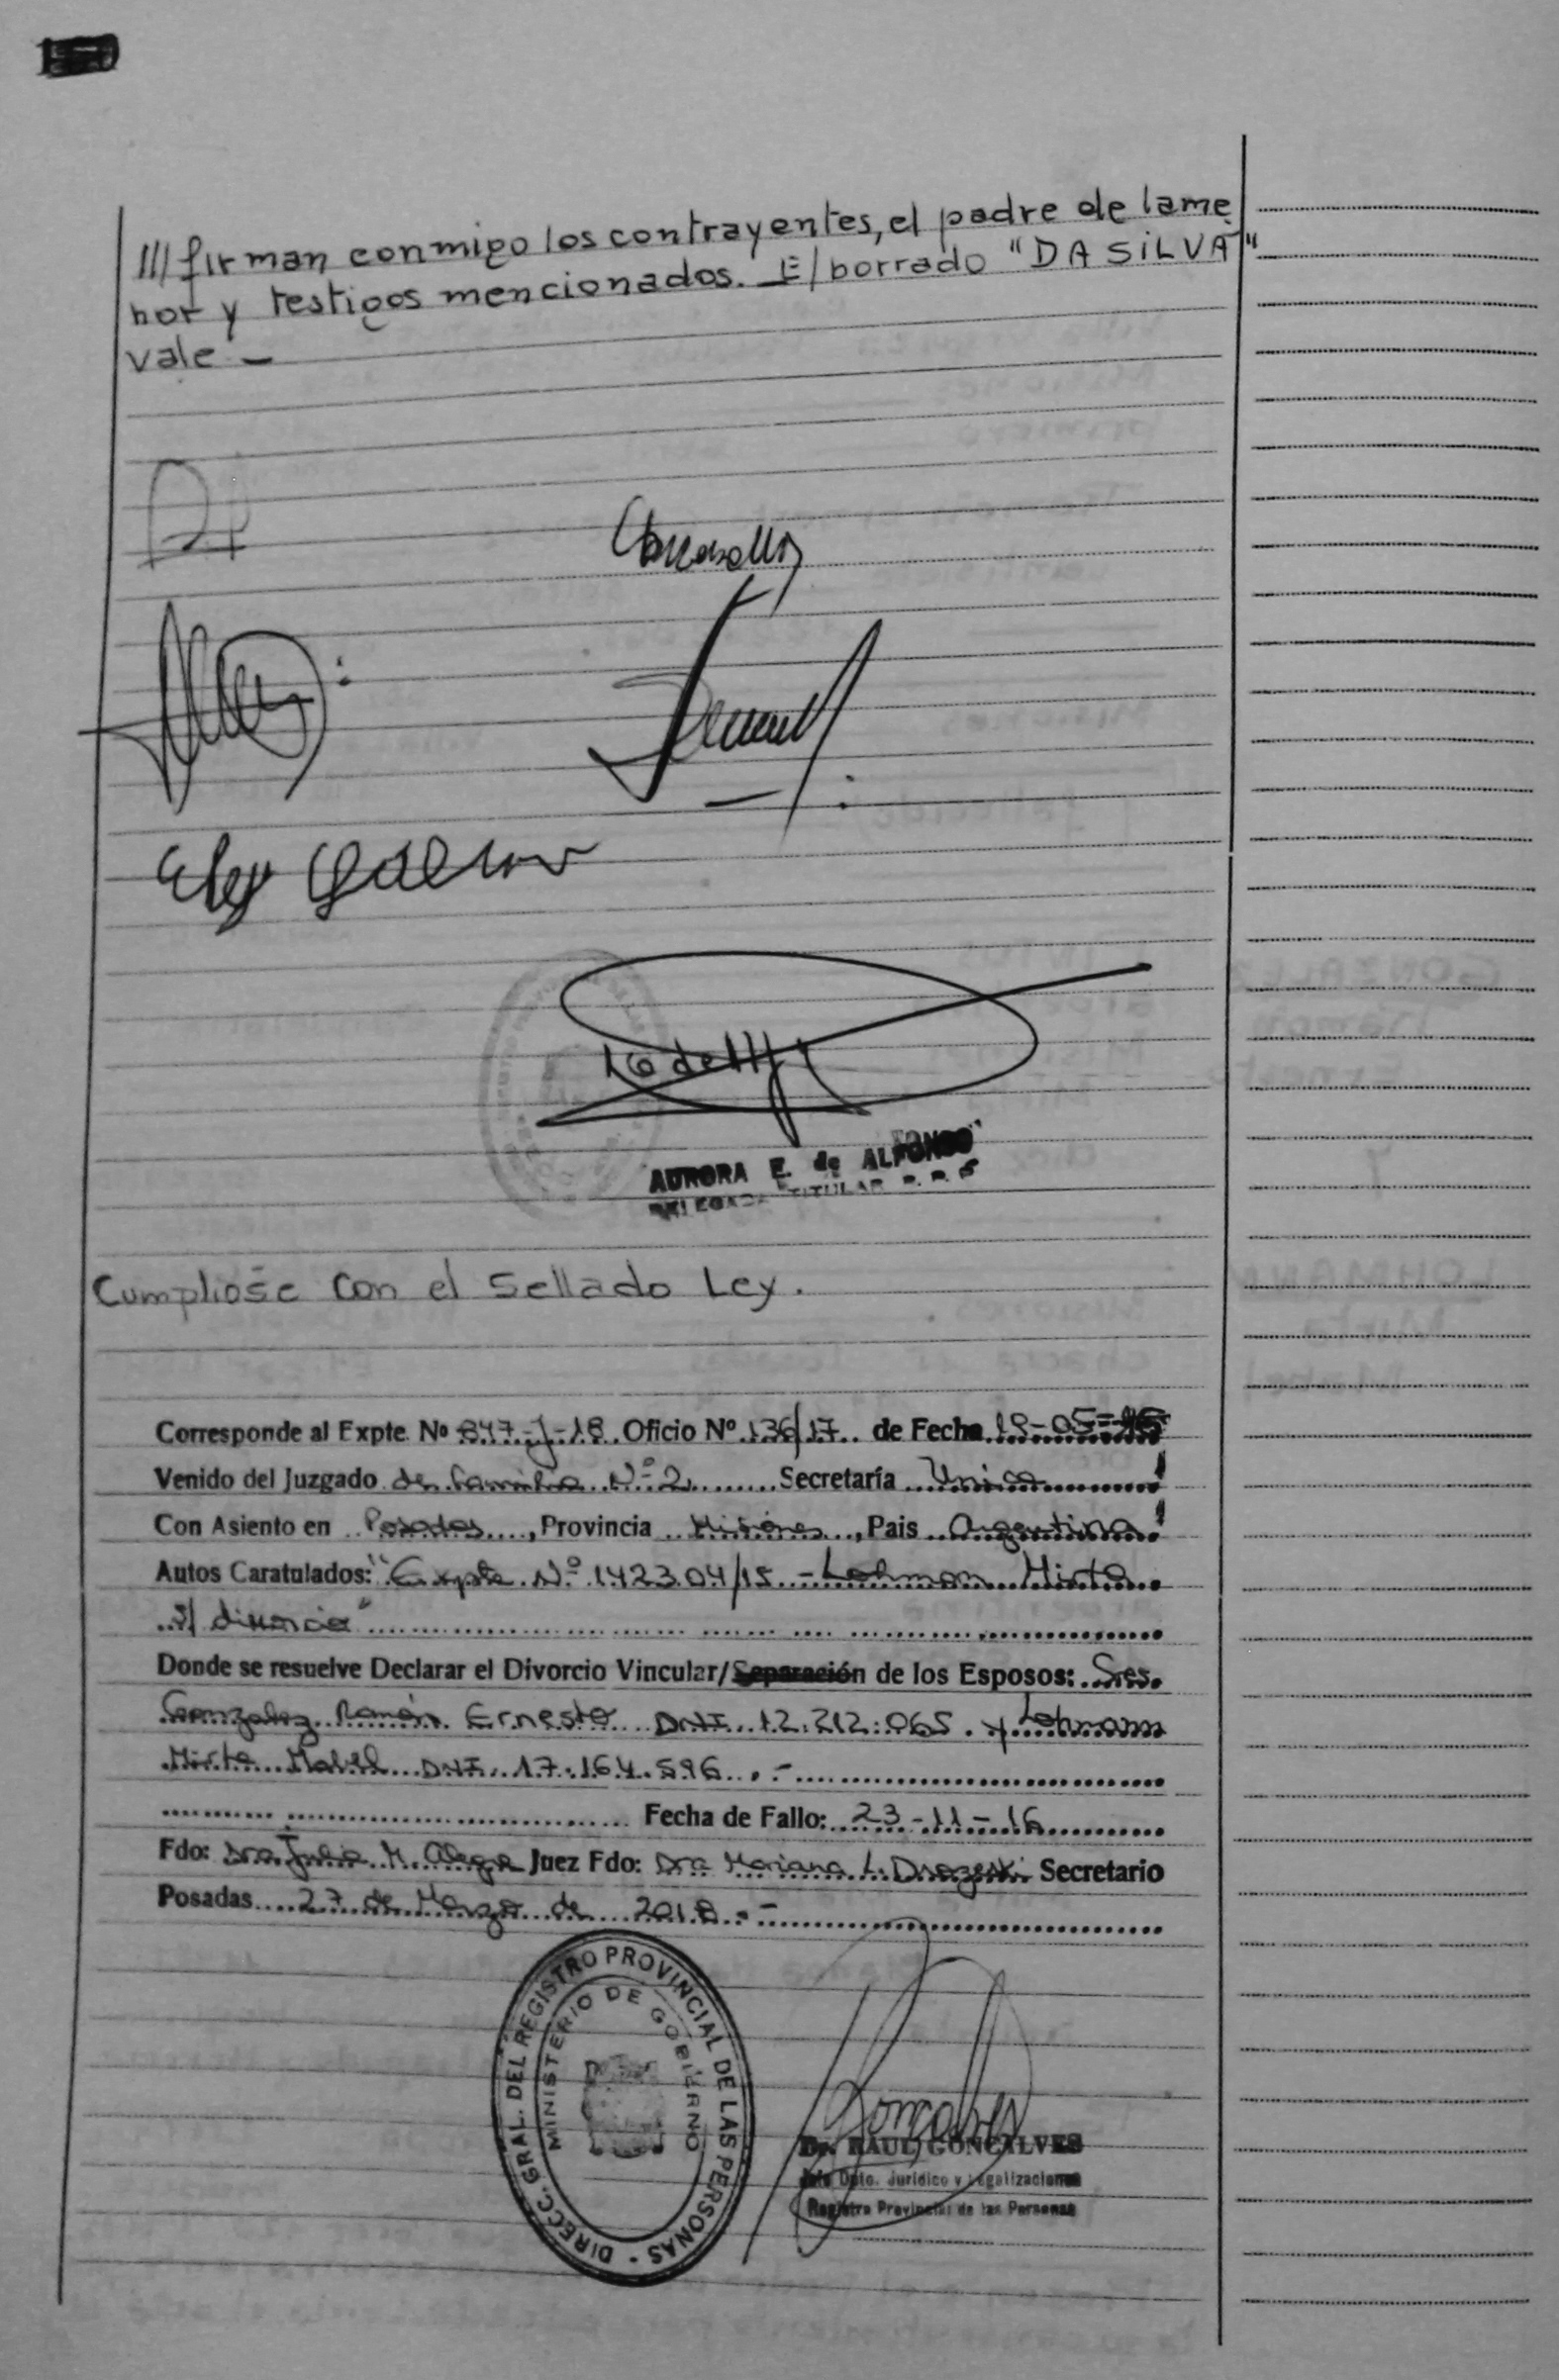 /// firman conmigo los contrayentes, el padre de la me
nor y testigos mencionados. _ E/borrado "DA SILVA"
vale -
AURORA E. de ALFONSO
DELEGADA TITULAR R. P. P.
Cumpliose con el Sellado Ley.
Corresponde al Expte. Nº 847-J-18 Oficio Nº 136/17 de Fecha 18-05-
Venido del Juzgado de Familia Nº 2 Secretaría Unica
Con Asiento en Posadas, Provincia Misiones, Pais Argentina
Autos Caratulados: "Expte Nº 142304/15 - Lohman Mirta
s/ divorcio"
Donde se resuelve Declarar el Divorcio Vincular/Separación de los Esposos: Sres.
Gonzalez Ramón Ernesto DNI 12.212.065 y Lohmann
Mirta Mabel DNI 17.164.596.-
Fecha de Fallo: 23-11-16
Fdo: Dra Julia M. Alegre Juez Fdo: Dra Mariana L. Secretario
Posadas 27 de Marzo de 2018.-
DIREC. GRAL. DEL REGISTRO PROVINCIAL DE LAS PERSONAS -
MINISTERIO DE GOBIERNO
Dr. RAUL GONCALVES
Jefe Dpto. Jurídico y Legalizaciones
Registro Provincial de las Personas